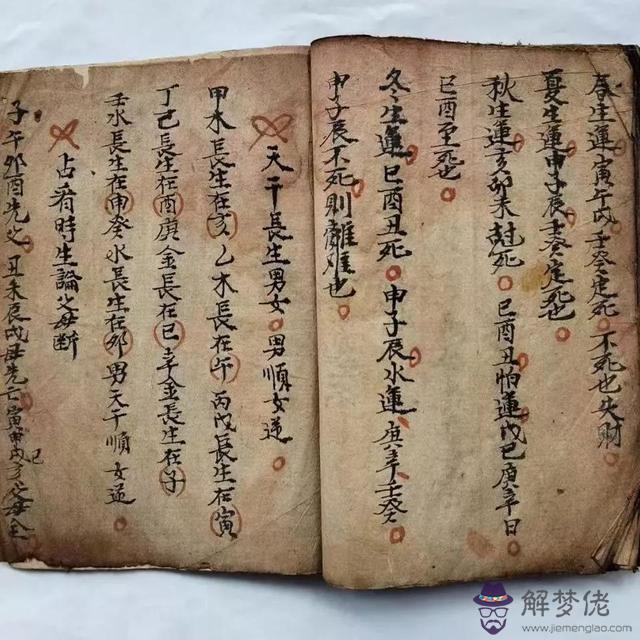 春生運寅午戌壬癸定死不死也失財
夏生運申子辰壬癸定死也
秋生運亥卯未尅死巳酉丑怕運戊己庚辛日
巳酉至死也
冬生運巳酉丑死申子辰水運庚辛壬癸
申子辰不死則離难也
天干長生男女男順女逆
甲木長生在亥乙木長生在午丙戊長生在寅
丁己長生在酉庚金長在巳辛金長生在子
壬水長生在申癸水長生在卯男天干順女逆
占看時生論父母断
子午卯酉先父丑未辰戌母先亡寅申巳亥父母全
解梦佬
www.jiemenglao.com